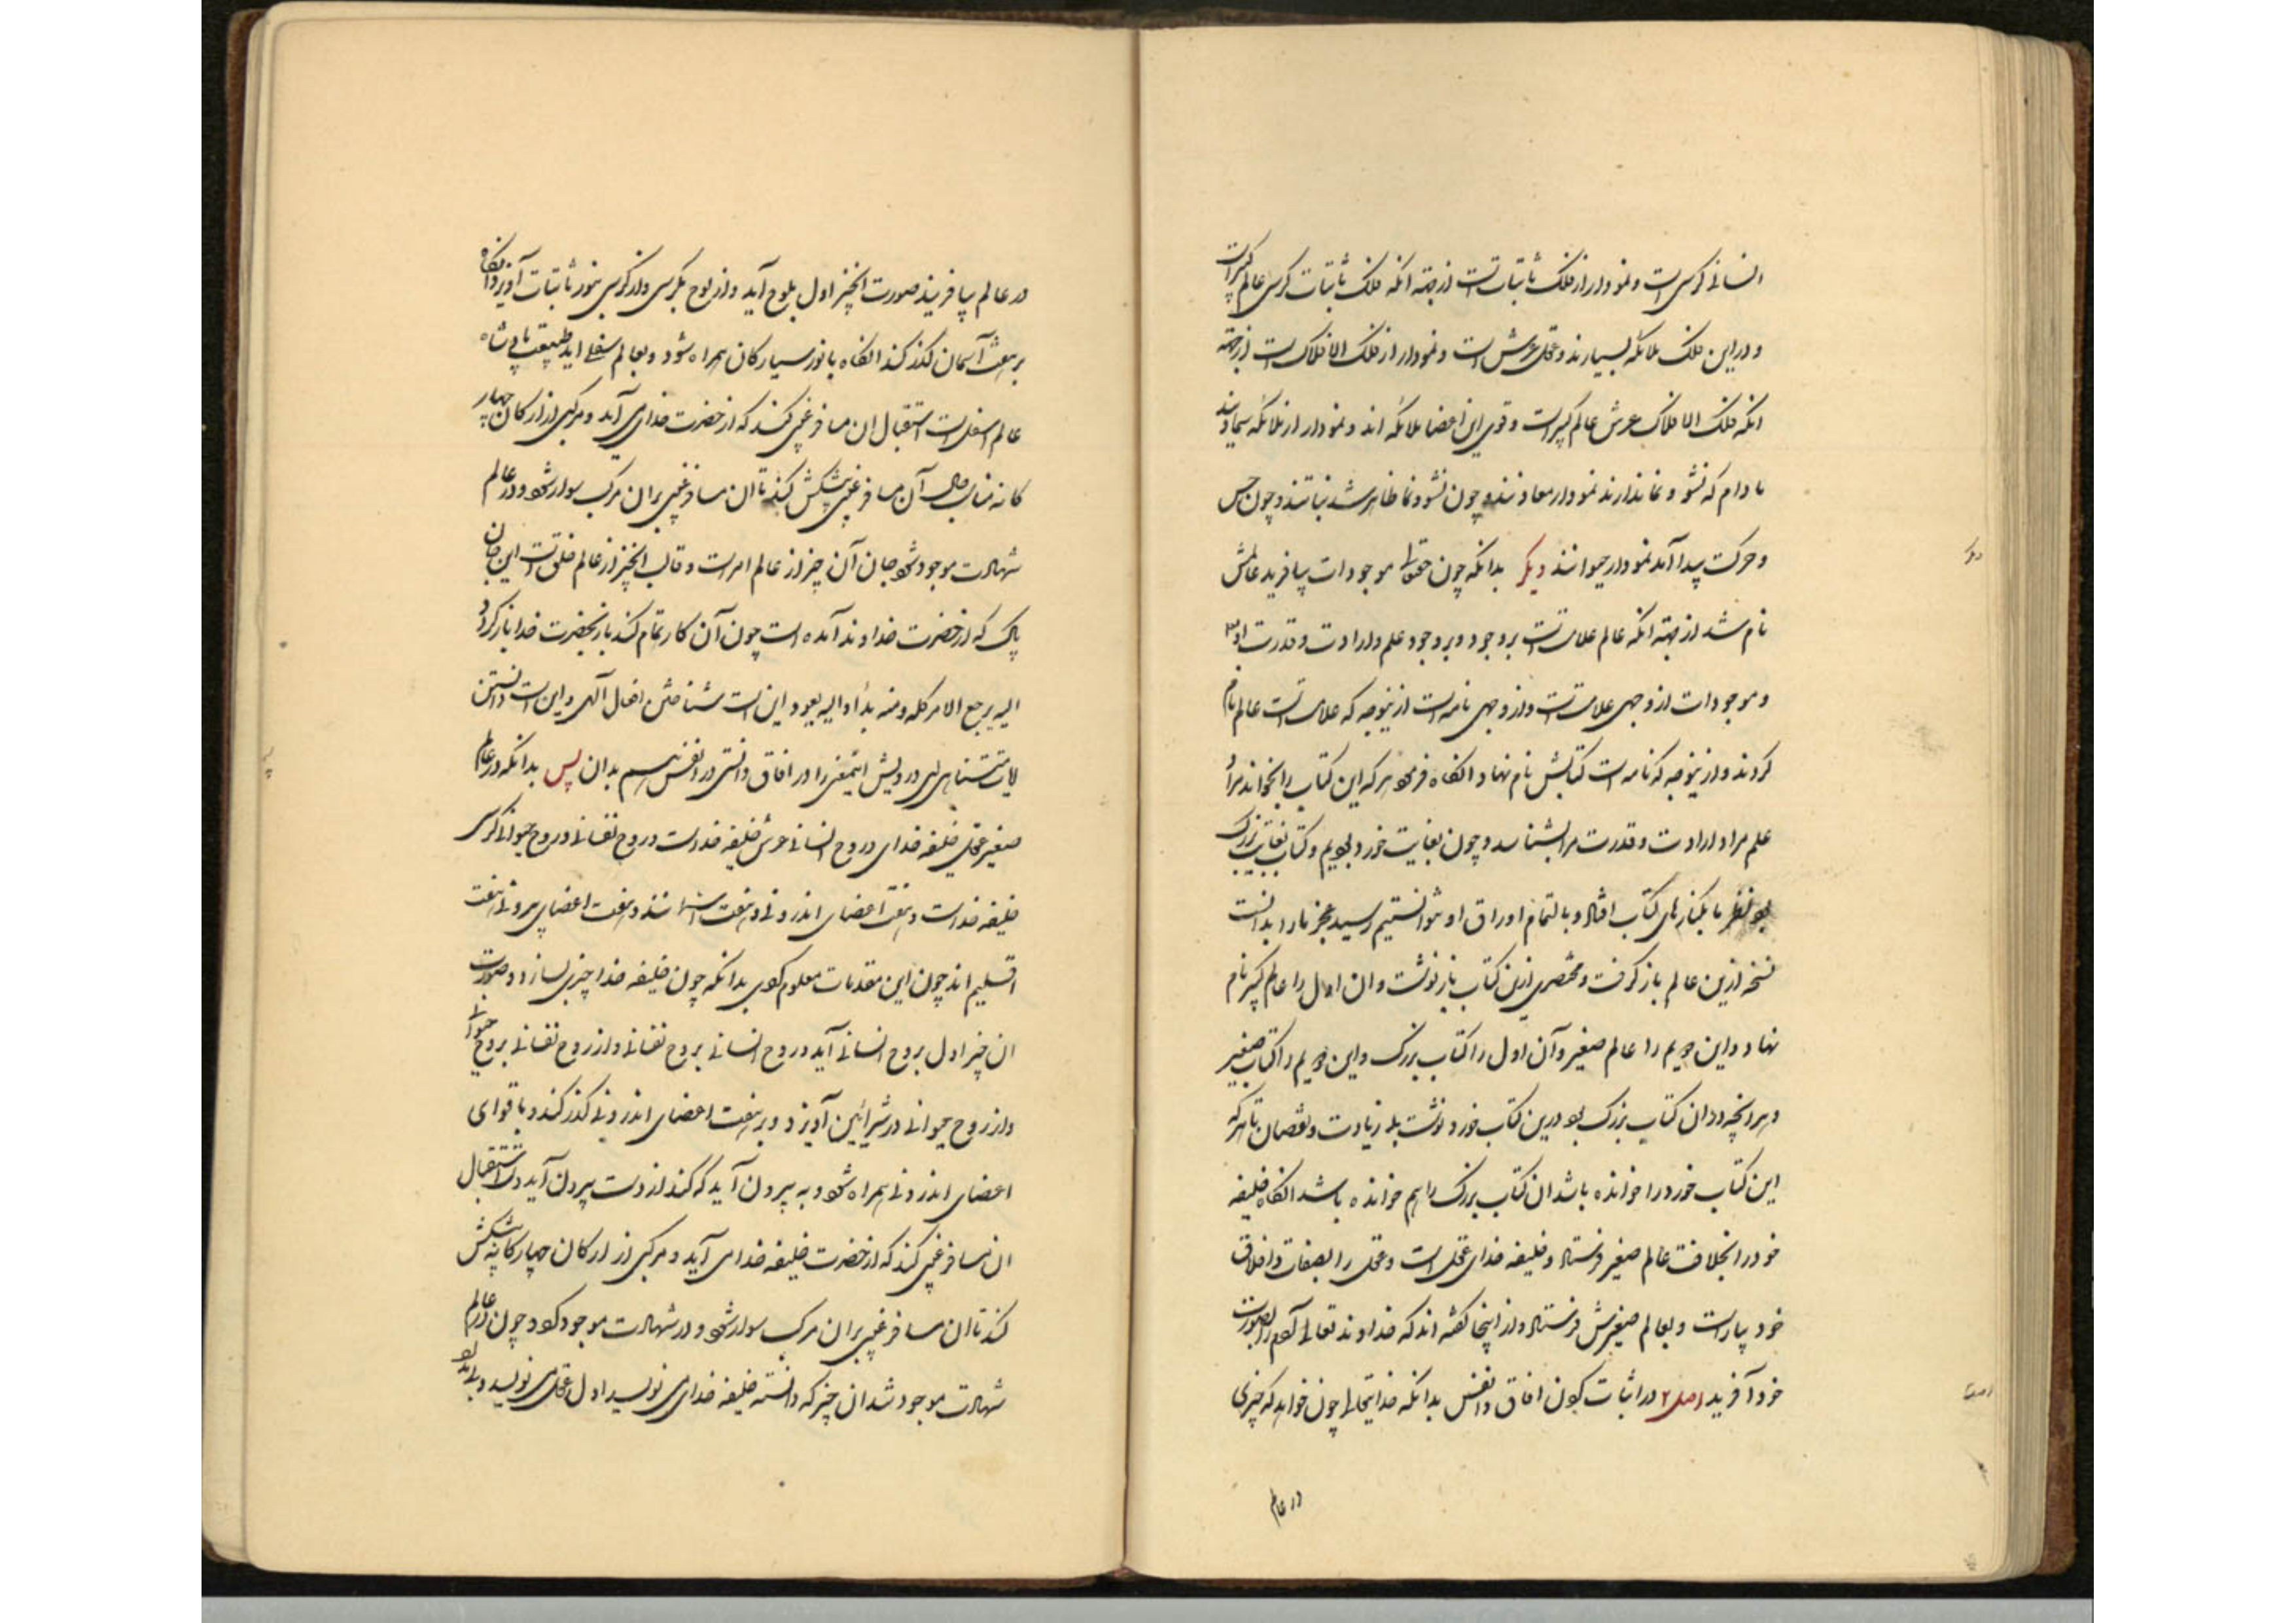 انسانی کرسی است و نمودار از فلک ثابتات است از جهة انکه فلک ثابتات کرسی عالم کبیر است
و در این فلک ملائکه بسیارند و عقل عرش است و نمودار از فلک الافلاک است از جهة
انکه فلک الافلاک عرش عالم کبیر است و قوی این اعضا ملائکه اند و نمودار از ملائکه سماوی
مادام که نشو و نما ندارند نمودار معادنند و چون نشو و نما ظاهر شد نباتند و چون حس
و حرکت پیدا آمد نمودار حیوانند دیگر بدانکه چون حقتعالی موجودات بیافرید عالمش
نام شد از جهة انکه عالم علامتست بر وجود و بر وجود علم و ارادت و قدرت او
و موجودات از وجهی علامتست و از وجهی نامه است ازینوجه که علامتست عالم نام
کردند و ازینوجه که نامه است کتابش نام نهاد انکاه فرمود هرکه این کتاب را بخواند مرا و
علم مرا و ارادت و قدرت مرا بشناسد و چون بغایت خورد بودیم و کتاب بغایت بزرگ
بود نظر ما بکنارهای کتاب افتاد و بالتمام اوراق او نتوانستیم رسید عجز ما را بدانست
نسخه ازین عالم باز کرفت و مختصری ازین کتاب باز نوشت و ان اول را عالم کبیر نام
نهاد و این دویم را عالم صغیر و آن اول را کتاب بزرگ و این دویم را کتاب صغیر
و هر انچه در ان کتاب بزرگ بود درین کتاب خورد نوشت بی زیادت و نقصان تا هرکه
این کتاب خورد را خوانده باشد ان کتاب بزرک را هم خوانده باشد انکاه خلیفه
خود را بخلافت عالم صغیر فرستاد و خلیفه خدای عقل است و عقل را بصفات و اخلاق
خود بیاراست و بعالم صغیرش فرستاد و از اینجا گفته اند که خداوند تعالی آدم را بصورت
خود آفرید اصل ۲ در اثبات کون افاق و انفس بدانکه خدایتعالی چون خواهد که چیزی
در عالم
در عالم بیافریند صورت انچیز اول بلوح آید و از لوح بکرسی و از کرسی بنور ثابتات آویزد انکاه
بر هفت آسمان گذر کند انکاه با نور سیارکان همراه شود و بعالم سفلی اید طبیعت پادشاه
عالم اسفل است استقبال ان مسافر غیبی کند که از حضرت خدای می آید و مرکبی از ارکان چهار
کانه مناسب حال آن مسافر غیبی پیشکش کند تا ان مسافر غیبی بران مرکب سوار شود و در عالم
شهادت موجود شود جان آن چیز از عالم امر است و قالب انچیز از عالم خلق است این جان
پاک که از حضرت خداوند آمده است چون آن کار تمام کند باز بحضرت خدا باز کردد
الیه یرجع الامر کله و منه بدأ و الیه یعود این است شناختن افعال الهی و این است دانستن
لایتناهی ای درویش اینمعنی را در افاق دانستی در انفس هم بدان پس بدانکه در عالم
صغیر عقل خلیفه خدای و روح انسانی عرش خلیفه خداست و روح نفسانی و روح حیوانی کرسی
خلیفه خداست و هفت اعضای اندرونی و هفت اسمانند و هفت اعضای بیرونی هفت
اقلیم اند چون این مقدمات معلوم کردی بدانکه چون خلیفه خدا چیزی بسازد و صورت
ان چیز اول بروح انسانی آید و روح انسانی بروح نفسانی و از روح نفسانی بروح حیوانی
و از روح حیوانی در شرائین آویزد و بر هفت اعضای اندرونی گذر کند و با قوای
اعضای اندرونی همراه شود و به بیرون آید که کند از دست بیرون آید دست استقبال
ان مسافر غیبی کند که از حضرت خلیفه خدای می آید و مرکبی از ارکان چهار کانه پیشکش
کند تا ان مسافر غیبی بران مرکب سوار شود و در شهادت موجود کردد چون در عالم
شهادت موجود شد ان چیز که دانسته خلیفه خدای می نویسد اول عقل می نویسد